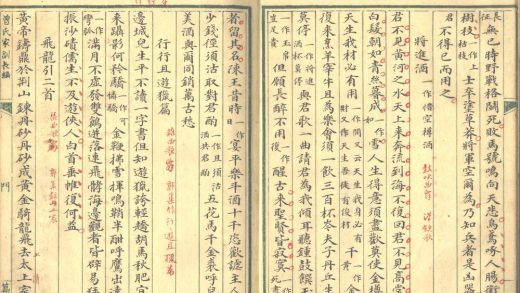 無已時野戰格鬭死敗馬號鳴向天悲烏鳶啄人腸銜
樹枝 枯枝 一作 士卒塗草莽將軍空爾為乃知兵者是凶器
君不得已而用之
將進酒 一作惜空樽酒 鼓吹曲辭 漢鐃歌
君不見黃河之水天上來奔流到海不復回君不見高堂
白髮朝如青絲暮成 一作如 雪人生得意須盡歡莫使金
天生我材必有用 一作開又云天生我身必有財又作天生吾徒有俊材 千 一作黃 金
復來烹羊宰牛且為樂會須一飲三百杯岑夫子丹丘生
莫停 一作將進酒杯莫停 與君歌一曲請君為我傾耳聽鐘鼓饌玉
豈足貴 但願長醉不用 一作復 醒古來聖賢皆寂寞 一作死盡
者留其名陳王昔時 一作日 宴平樂斗酒十千恣歡謔主人
少錢徑須沽取對君酌 五花馬千金裘呼兒
美酒與爾同銷萬古愁
行行且遊獵篇 雜曲歌辭
邊城兒生年不讀一字書但知遊獵誇輕趫胡馬秋肥宜
來躡影何矜驕 金鞭拂雪揮鳴鞘半酣呼鷹出遠
彎弧 滿月不虛發雙鶬迸落連飛髇海邊觀者皆辟易猛
振沙磧儒生不及遊俠人白首垂帷復何益
飛龍引二首
黃帝鑄鼎於荊山鍊丹砂丹砂成黃金騎龍飛去太上家
曾氏家訓長編 門